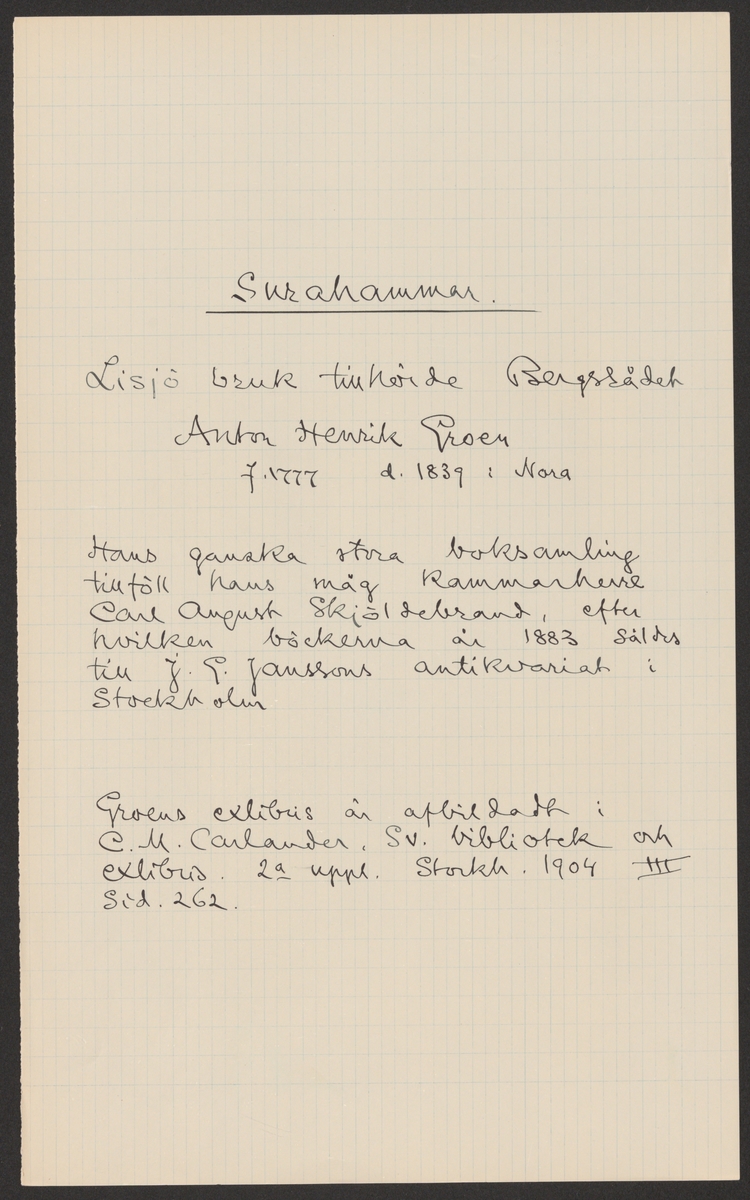 Surahammar.
Lisjö bruk tillhörde Bergsrådet
Anton Henrik Groen
f. 1777 d. 1839 i Nora
Hans ganska stora boksamling
tillföll hans måg Kammarherre
Carl August Skjöldebrand, efter
hvilken böckerna år 1883 såldes
till J. G. Janssons antikvariat i
Stockholm
Groens exlibris är afbildadt i
C. M. Carlander, Sv. bibliotek och
exlibris. 2a uppl. Stockh. 1904 III
Sid. 262.